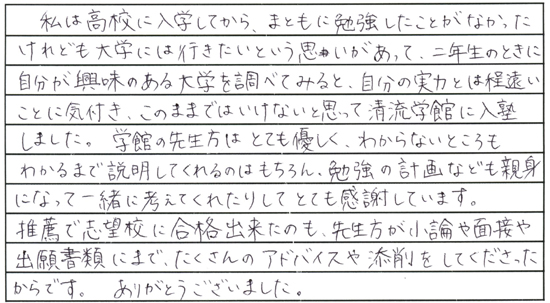 私は高校に入学してから、まともに勉強したことがなかった
けれども大学には行きたいという思いがあって、二年生のときに
自分が興味のある大学を調べてみると、自分の実力とは程遠い
ことに気付き、このままではいけないと思って清流学館に入塾
しました。 学館の先生方はとても優しく、わからないところも
わかるまで説明してくれるのはもちろん、勉強の計画なども親身
になって一緒に考えてくれたりしてとても感謝しています。
推薦で志望校に合格出来たのも、先生方が小論や面接や
出願書類にまで、たくさんのアドバイスや添削をしてくださった
からです。 ありがとうございました。